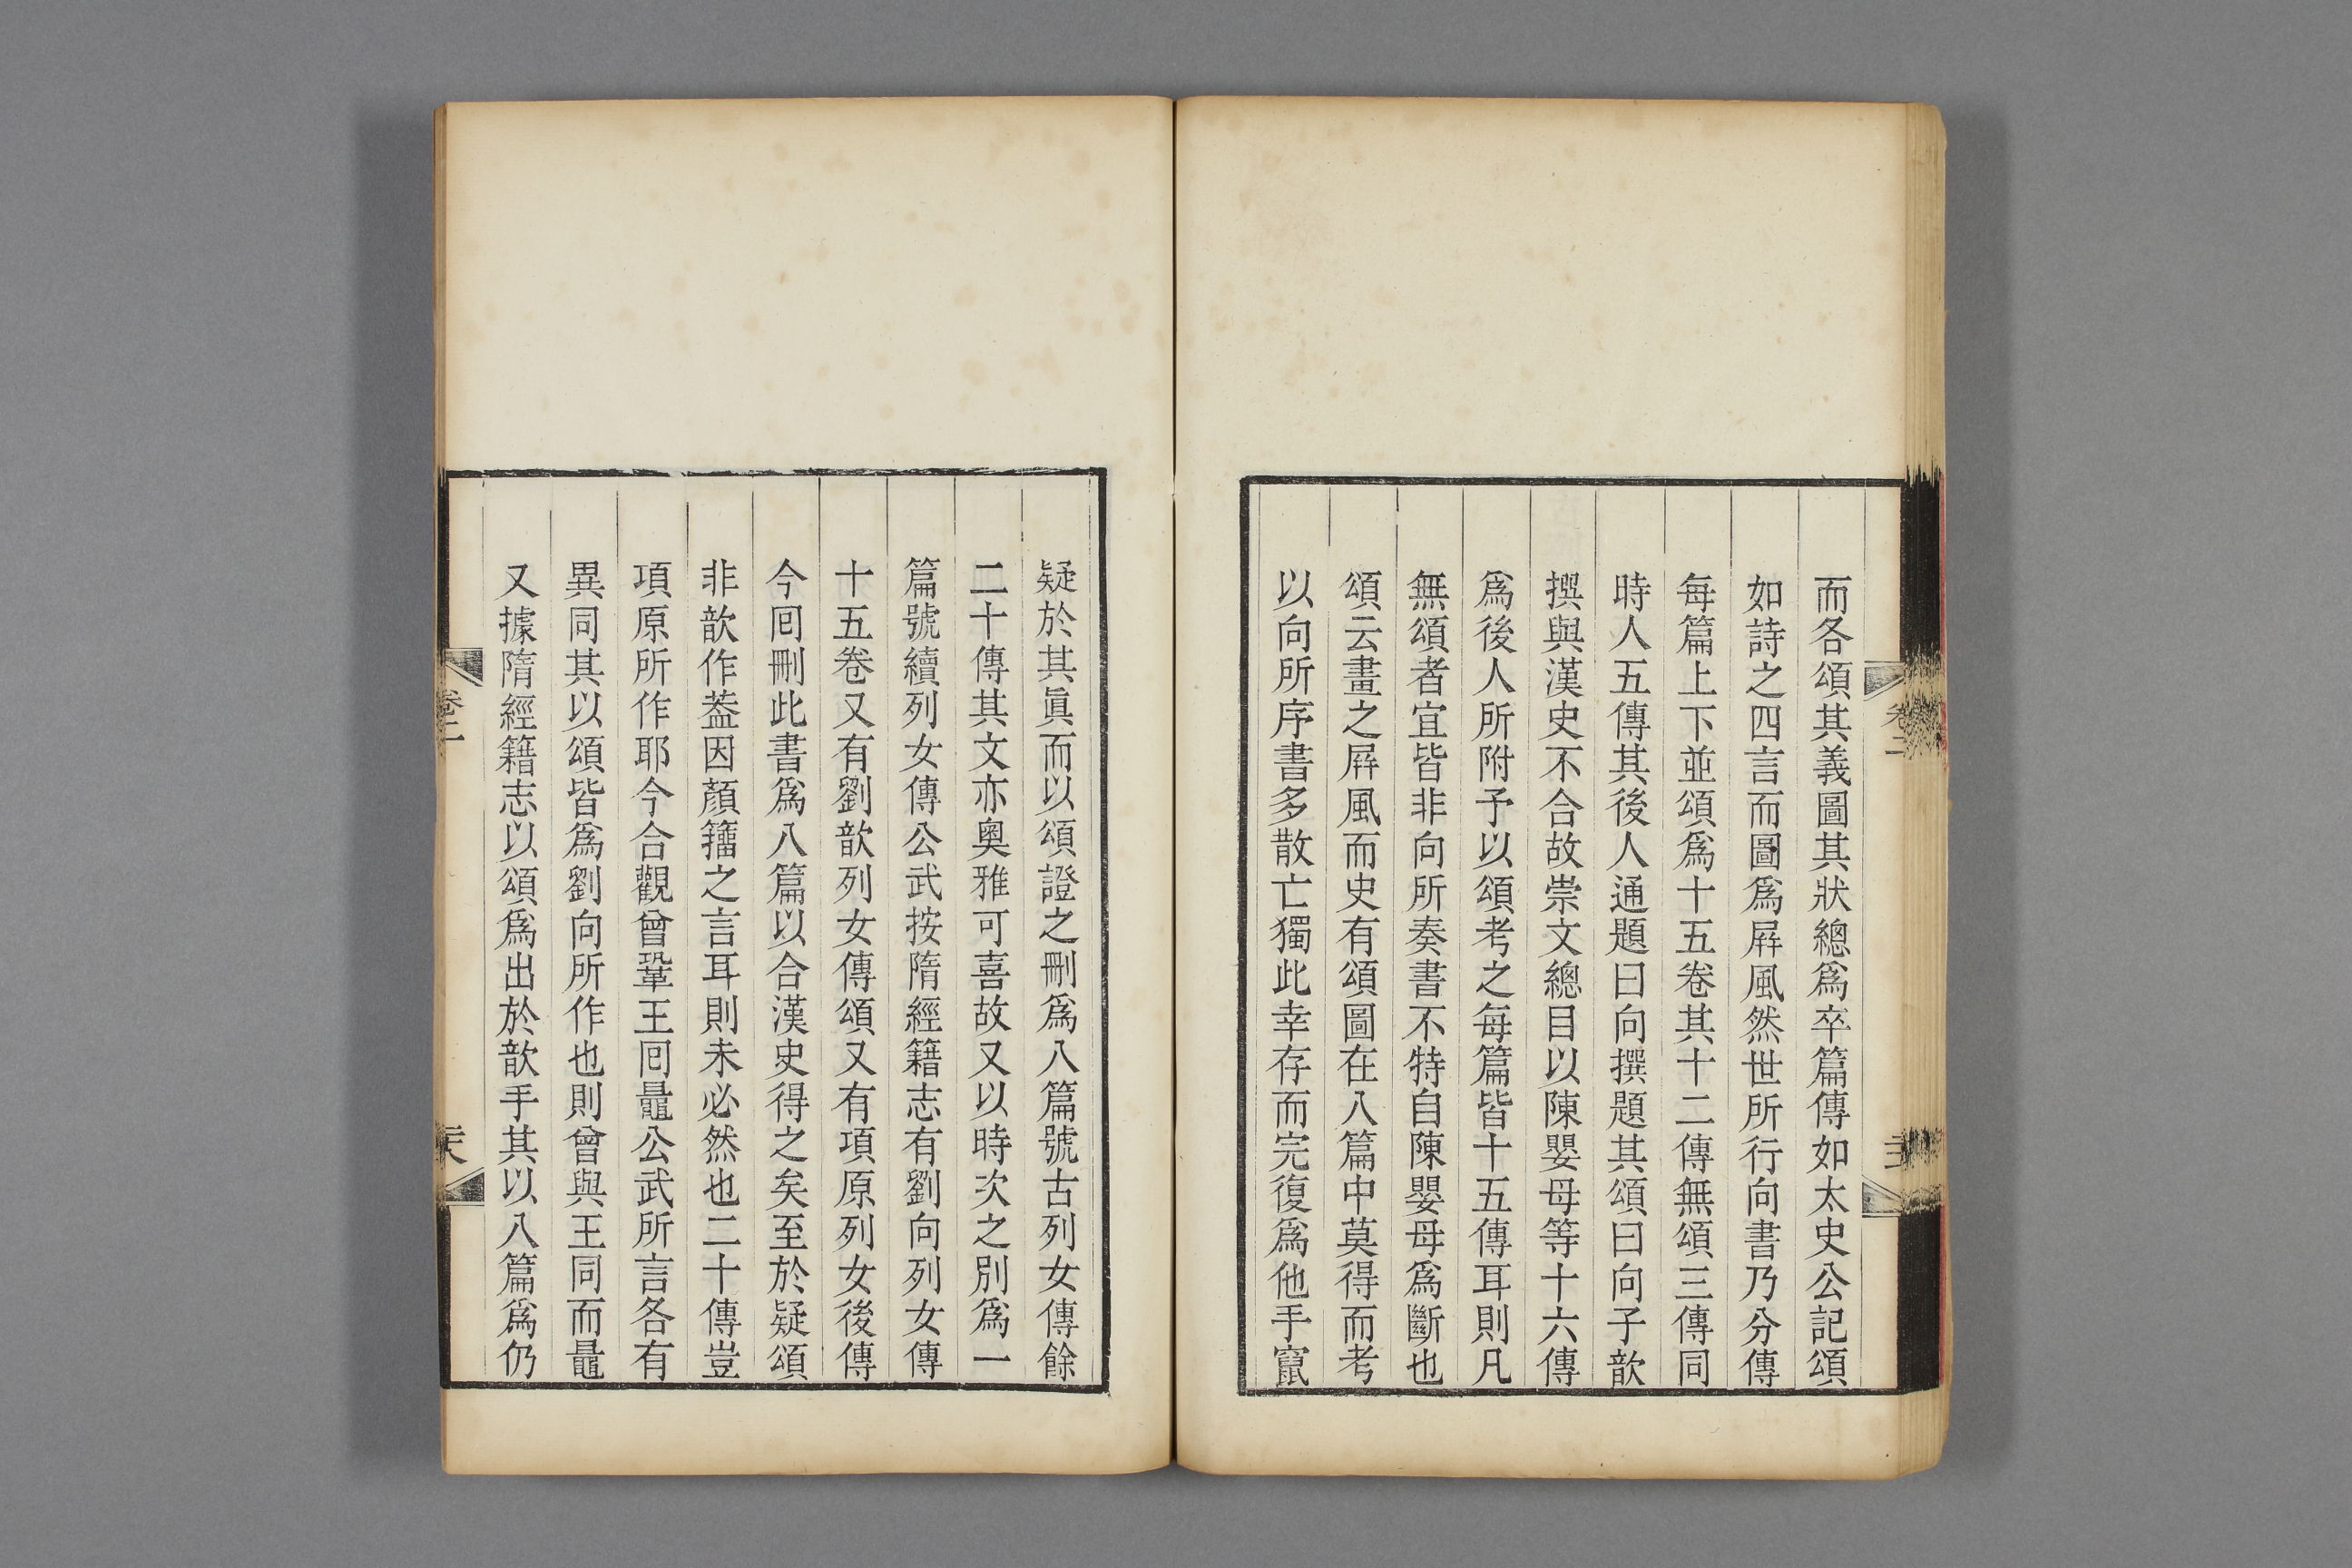 而各頌其義圖其狀總爲卒篇傳如太史公記頌
如詩之四言而圖爲屛風然世所行向書乃分傳
每篇上下並頌爲十五卷其十二傳無頌三傳同
時人五傳其後人通題曰向撰題其頌曰向子歆
撰與漢史不合故崇文總目以陳嬰母等十六傳
爲後人所附予以頌考之每篇皆十五傳耳則凡
無頌者宜皆非向所奏書不特自陳嬰母爲斷也
頌云畫之屛風而史有頌圖在八篇中莫得而考
以向所序書多散亡獨此幸存而完復爲他手竄
疑於其眞而以頌證之刪爲八篇號古列女傳餘
二十傳其文亦奧雅可喜故又以時次之別爲一
篇號續列女傳公武按隋經籍志有劉向列女傳
十五卷又有劉歆列女傳頌又有項原列女後傳
今囘刪此書爲八篇以合漢史得之矣至於疑頌
非歆作葢因顏籒之言耳則未必然也二十傳豈
項原所作耶今合觀曾鞏王囘鼂公武所言各有
異同其以頌皆爲劉向所作也則曾與王同而鼂
又據隋經籍志以頌爲出於歆手其以八篇爲仍
卷二